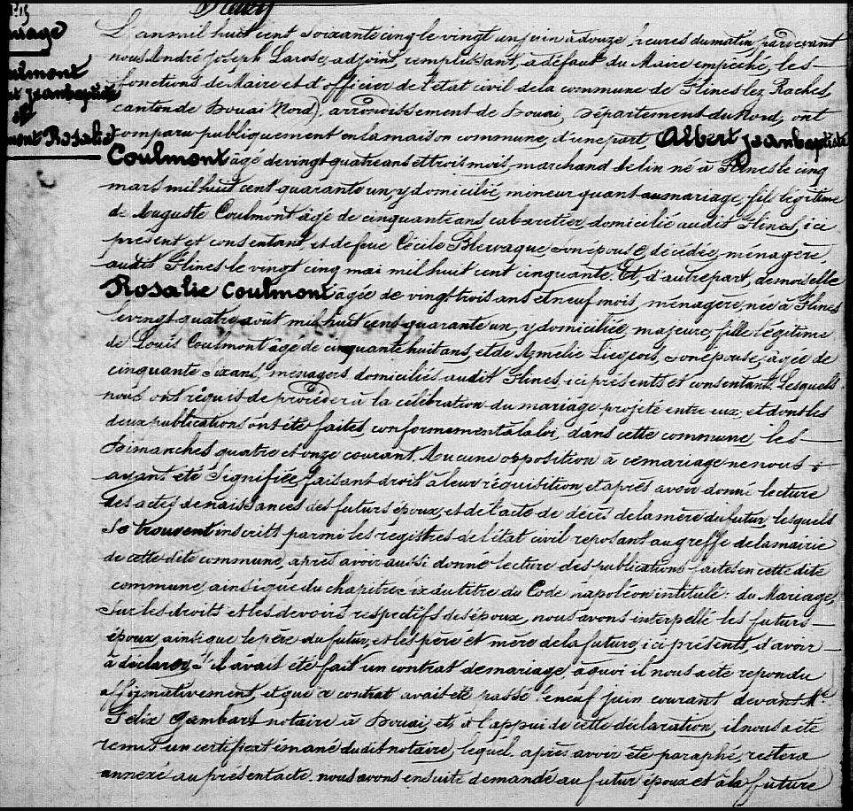 N°. 15
Mariage
Coulmont
Albert Jeanbaptiste
et
Coulmont Rosalie
L'an mil huit cent soixante cinq le vingt un juin à douze heures du matin, pardevant
nous André Joseph Larose, adjoint, remplissant, à défaut du Maire empêché, les
fonctions de Maire et d'officier de l'état civil de la commune de Flines lez Raches,
canton de Douai (Nord), arrondissement de Douai, Département du Nord, ont
comparu publiquement en la maison commune, d'une part, Albert Jeanbaptiste
Coulmont âgé de vingt quatre ans et trois mois, marchand de lin né à Flines le cinq
mars mil huit cent quarante un, y domicilié, mineur quant au mariage, fils légitime
de Auguste Coulmont âgé de cinquante ans cabaretier, domicilié audit Flines, ici
présent et consentant, et de feue Cécile son épouse décédée, ménagère,
audit Flines le vingt cinq mai mil huit cent cinquante. Et, d'autre part, demoiselle
Rosalie Coulmont âgée de vingt trois ans et neuf mois, ménagère, née à Flines
le vingt quatre août mil huit cent quarante un, y domiciliée, majeure, fille légitime
de Louis Coulmont âgé de cinquante huit ans, et de Amélie Liegeois, son épouse, âgée de
cinquante six ans, ménagers domiciliés audit Flines, ici présents et consentant. Lesquels
nous ont réquis de procéder à la célébration du mariage projeté entre eux, et dont les
deux publications ont été faites, conformément à la loi, dans cette commune les
Dimanches quatre et onze courant. Aucune opposition à ce mariage ne nous
ayant été signifiée, faisant droit à leur réquisition, et après avoir donné lecture
des actes de naissances des futurs époux, et de l'acte de décès de la mère du futur, lesquels
se trouvent inscrits parmi les registres de l'état civil reposant au greffe de la mairie
de cette dite commune, après avoir aussi donné lecture des publications faites en cette dite
commune, ainsi que du chapitre six du titre du Code napoléon intitulé: du Mariage,
sur les droits et les devoirs respectifs des époux, nous avons interpellé les futurs
époux, ainsi que le père du futur, et les père et mère de la future, ici présents, d'avoir
à déclarer s'il avait été fait un contrat de mariage, à quoi il nous a été repondu
affirmativement, et que ce contrat avait été passé le neuf juin courant devant Me
Félix Gambart notaire à Douai, et, à l'appui de cette déclaration, il nous a été
remis un certificat émané dudit notaire, lequel, après avoir été paraphé, restera
annexé au présent acte. nous avons ensuite demandé au futur époux et à la future